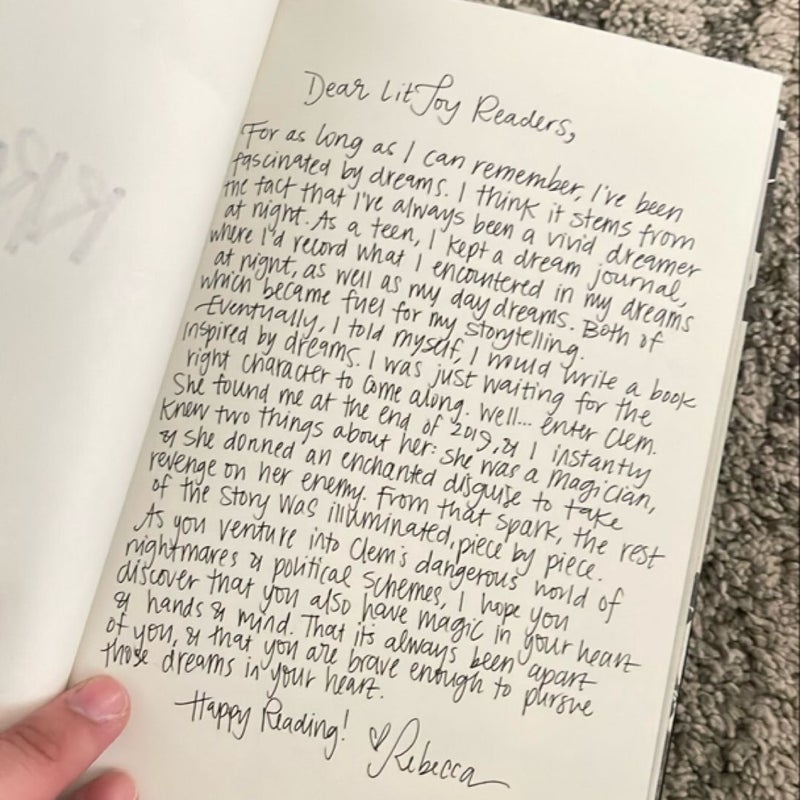 Dear LitJoy Readers,
For as long as I can remember, I've been
fascinated by dreams. I think it stems from
the fact that I've always been a vivid dreamer
at night. As a teen, I kept a dream journal,
where I'd record what I encountered in my dreams
at night, as well as my day dreams. Both of
which became fuel for my storytelling.
Eventually, I told myself, I would write a book
inspired by dreams. I was just waiting for the
right character to come along. Well... enter Clem.
She found me at the end of 2019, & I instantly
knew two things about her: she was a magician,
& she donned an enchanted disguise to take
revenge on her enemy. From that spark, the rest
of the story was illuminated, piece by piece.
As you venture into Clem's dangerous world of
nightmares & political schemes, I hope you
discover that you also have magic in your heart
& hands & mind. That its always been apart
of you, & that you are brave enough to pursue
those dreams in your heart.
Happy Reading! ♡Rebecca